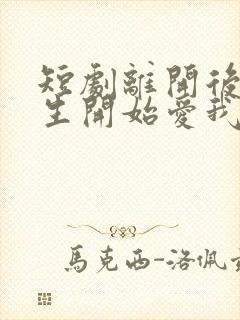 短劇離開後
生開始愛我
馬克西-洛佩茲